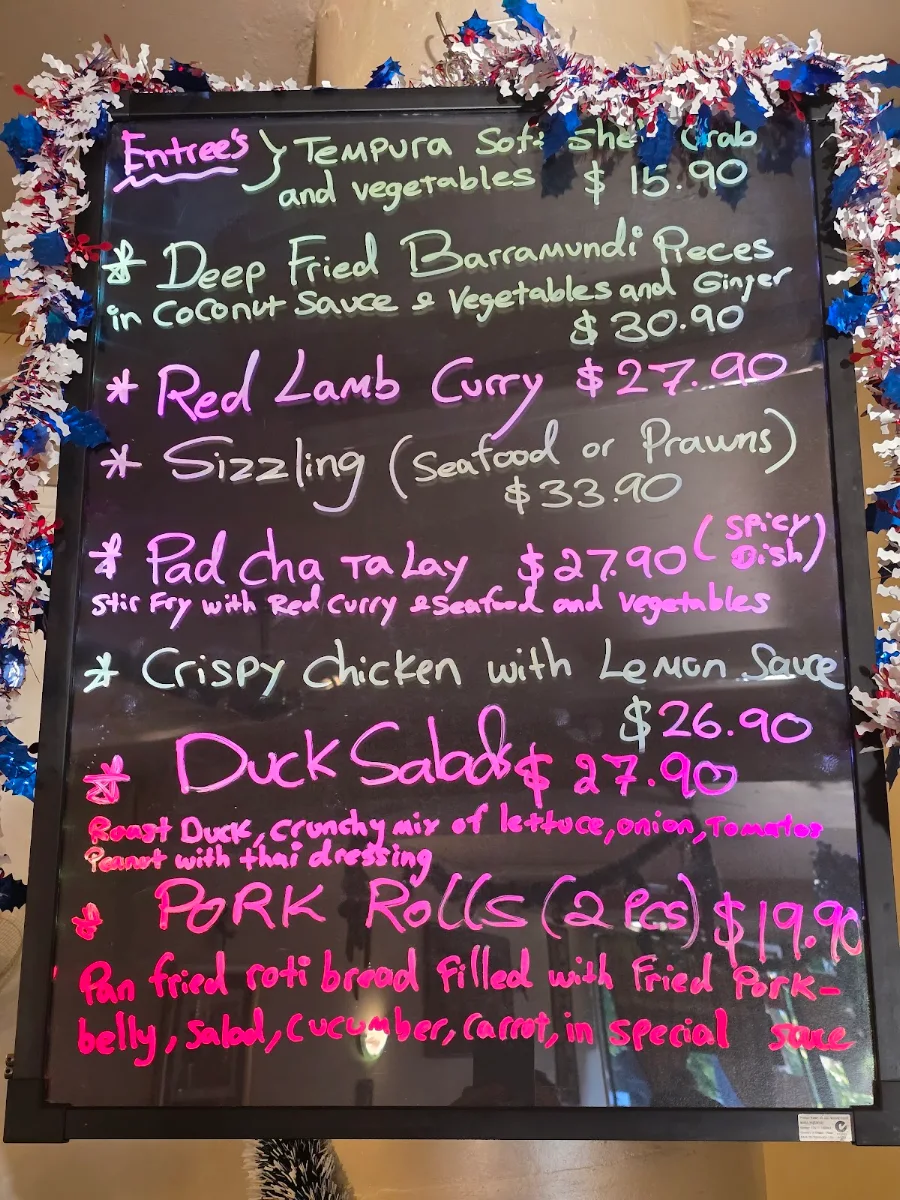 Entree's } Tempura Soft Shell Crab
and vegetables $ 15.90
* Deep Fried Barramundi Pieces
in Coconut Sauce & Vegetables and Ginger
$ 30.90
* Red Lamb Curry $27.90
* Sizzling (Seafood or Prawns)
$33.90
* Pad cha Ta Lay $27.90 (spicy dish)
Stir Fry with Red Curry & Seafood and vegetables
* Crispy chicken with Lemon Sauce
$26.90
* Duck Salad $ 27.90
Roast Duck, crunchy mix of lettuce, onion, Tomatos
Peanut with thai dressing
* PORK Rolls (2 Pcs) $19.90
Pan fried roti bread filled with Fried Pork-
belly, salad, cucumber, carrot, in special sauce